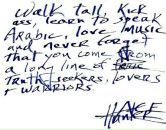 walk tall, kick
ass, learn to speak
Arabic, love music
and never forget
that you come from
a long line of
truth seekers, lovers
+ WARRIORS.